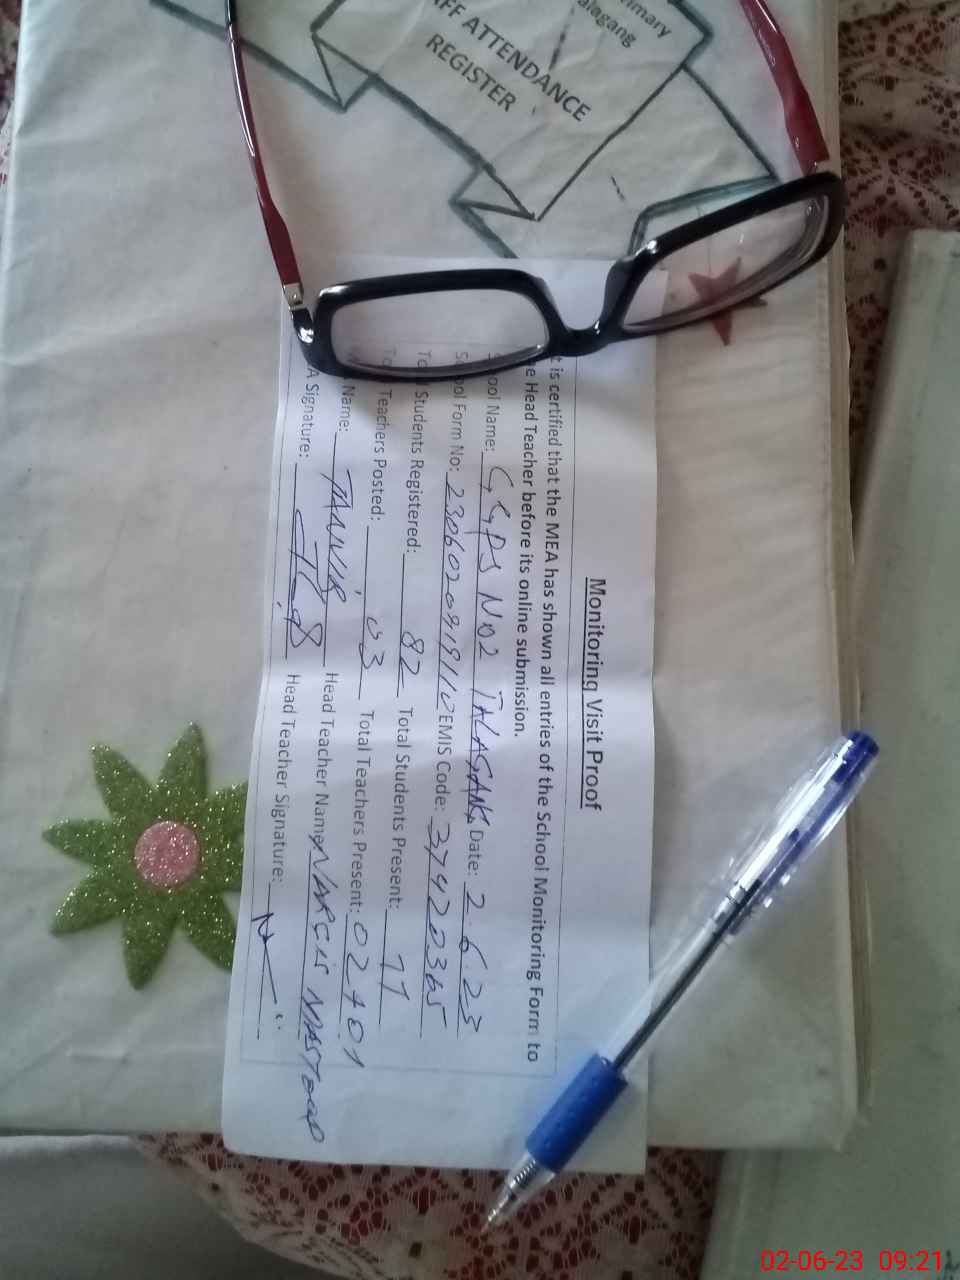 imary
alagang
FF ATTENDANCE
REGISTER
Monitoring Visit Proof
t is certified that the MEA has shown all entries of the School Monitoring Form to
e Head Teacher before its online submission.
ool Name: GGPS NO2 TALAGANG Date: 2.6.23
School Form No: EMIS Code: 37420365
Students Registered: 82 Total Students Present: 77
Teachers Posted: 03 Total Teachers Present: 02+01
Name: TANVIR Head Teacher Name NARGIS MASTOOR
A Signature: Head Teacher Signature:
02-06-23 09:21